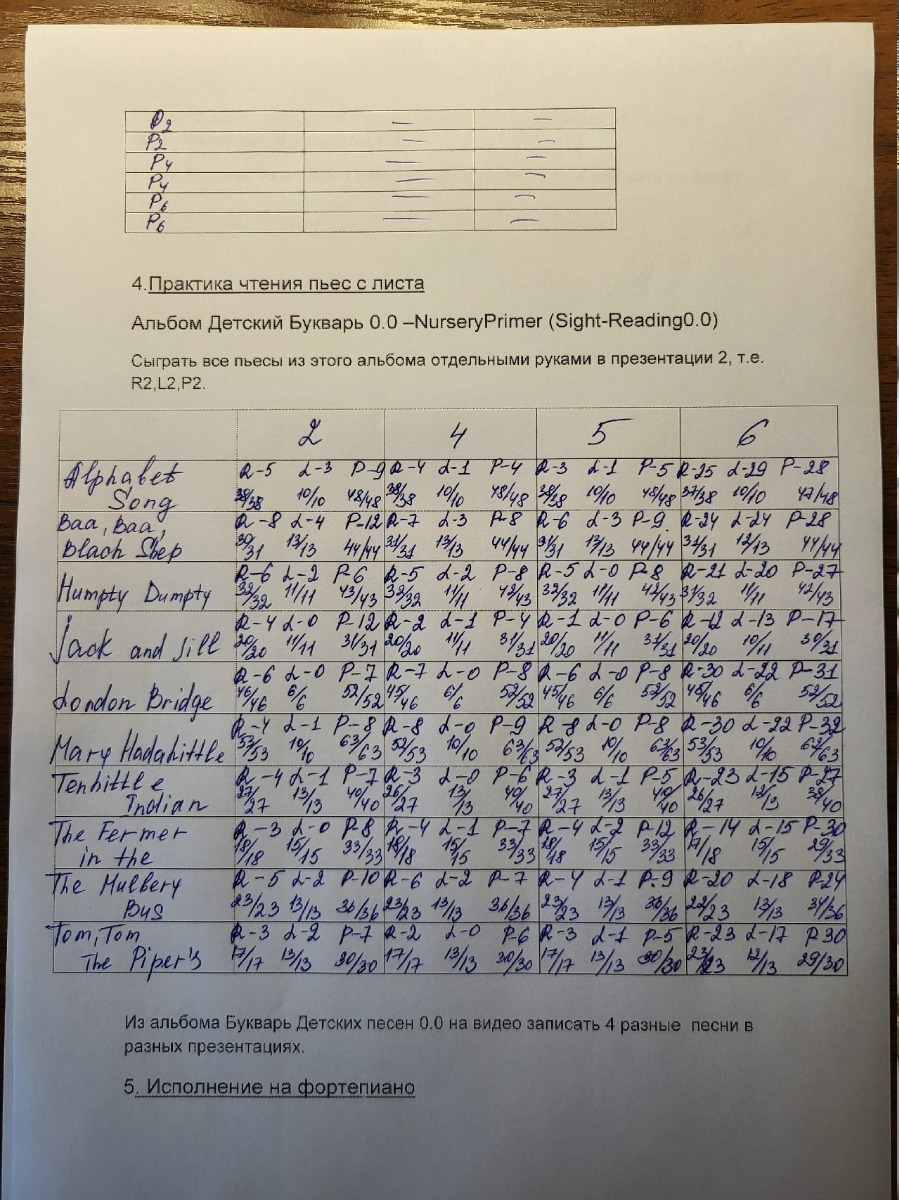 P2 — —
P2 — —
P4 — —
P4 — —
P6 — —
P6 — —
4.Практика чтения пьес с листа
Альбом Детский Букварь 0.0 –NurseryPrimer (Sight-Reading0.0)
Сыграть все пьесы из этого альбома отдельными руками в презентации 2, т.е.
R2,L2,P2.
2 4 5 6
Alphabet R-5 L-3 P-9 R-4 L-1 P-4 R-3 L-1 P-5 R-25 L-29 P-28
Song 38/38 10/10 48/48 38/38 10/10 48/48 38/38 10/10 48/48 37/38 10/10 47/48
Baa, Baa, R-8 L-4 P-12 R-7 L-3 P-8 R-6 L-3 P-9 R-24 L-24 P-28
Black Shep 30/31 13/13 44/44 31/31 13/13 44/44 31/31 13/13 44/44 31/31 12/13 44/44
R-6 L-2 P-6 R-5 L-2 P-8 R-5 L-0 P-8 R-21 L-20 P-27
Humpty Dumpty 32/32 11/11 43/43 32/32 11/11 42/43 32/32 11/11 42/43 31/32 11/11 42/43
R-4 L-0 P-12 R-2 L-1 P-4 R-1 L-0 P-6 R-12 L-13 P-17
Jack and Jill 20/20 11/11 31/31 20/20 11/11 31/31 20/20 11/11 31/31 20/20 10/11 30/31
R-6 L-0 P-7 R-7 L-0 P-8 R-6 L-0 P-8 R-30 L-22 P-31
London Bridge 46/46 6/6 52/52 45/46 6/6 52/52 45/46 6/6 52/52 45/46 6/6 52/52
R-4 L-1 P-8 R-8 L-0 P-9 R-8 L-0 P-8 R-30 L-22 P-32
Mary Hadalittle 53/53 10/10 63/63 52/53 10/10 63/63 52/53 10/10 63/63 53/53 10/10 62/63
Tenlittle R-4 L-1 P-7 R-3 L-0 P-6 R-3 L-1 P-5 R-23 L-15 P-27
Indian 27/27 13/13 40/40 26/27 13/13 40/40 27/27 13/13 40/40 26/27 12/13 38/40
The Fermer R-3 L-0 P-8 R-4 L-1 P-7 R-4 L-2 P-12 R-14 L-15 P-30
in the 18/18 15/15 33/33 18/18 15/15 33/33 18/18 15/15 33/33 17/18 15/15 29/33
The Mulbery R-5 L-2 P-10 R-6 L-2 P-7 R-4 L-1 P-9 R-20 L-18 P-24
Bus 23/23 13/13 36/36 23/23 13/13 36/36 23/23 13/13 36/36 22/23 13/13 34/36
Tom, Tom R-3 L-2 P-7 R-2 L-0 P-6 R-3 L-1 P-5 R-23 L-17 P-30
The Piper's 17/17 13/13 30/30 17/17 13/13 30/30 17/17 13/13 30/30 12/13 29/30
Из альбома Букварь Детских песен 0.0 на видео записать 4 разные песни в
разных презентациях.
5. Исполнение на фортепиано